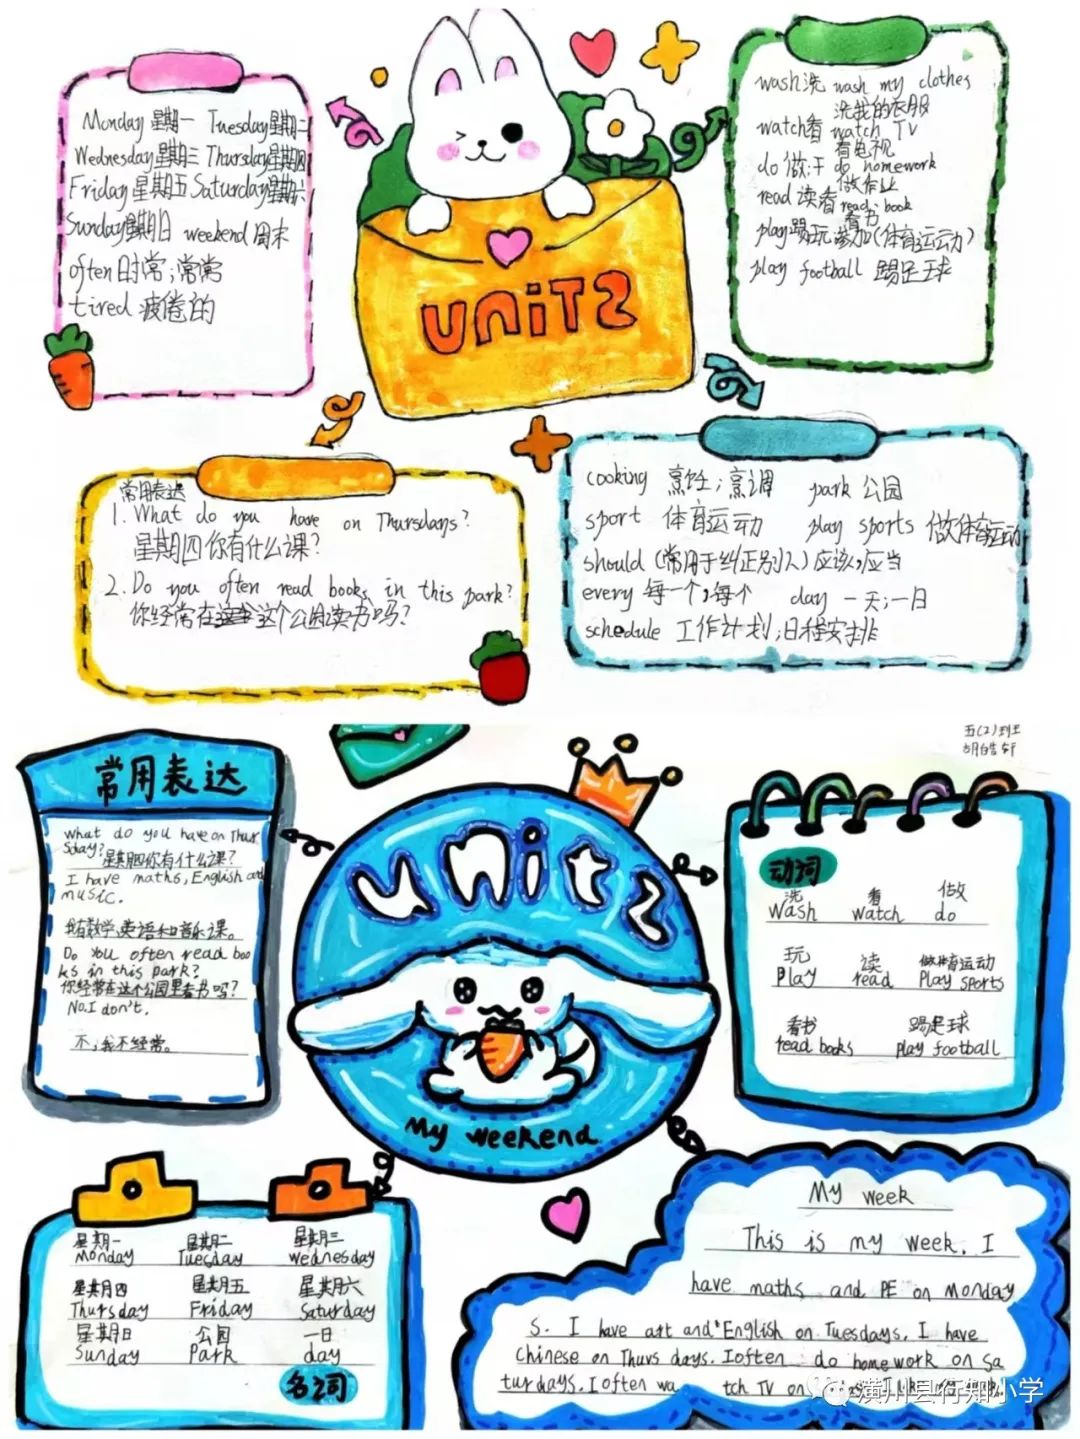 Monday 星期一 Tuesday 星期二
Wednesday 星期三 Thursday 星期四
Friday 星期五 Saturday 星期六
Sunday 星期日 weekend 周末
often 时常;常常
tired 疲倦的
UNIT2
wash 洗 wash my clothes
洗我的衣服
watch 看 watch TV
看电视
do 做;干 do homework
做作业
read 读看 read book
看书
play 踢玩参加(体育运动)
play football 踢足球
常用表达
1. What do you have on Thursdays?
星期四你有什么课?
2. Do you often read books in this park?
你经常在这个公园读书吗?
cooking 烹饪;烹调 park 公园
sport 体育运动 play sports 做体育运动
should (常用于纠正别人)应该;应当
every 每一个;每个 day 一天;一日
schedule 工作计划;日程安排
五(2)班
胡皓轩
常用表达
What do you have on Thur
sday?
星期四你有什么课?
I have maths, English and
music.
我有数学,英语和音乐课。
Do You often read boo
ks in this park?
你经常在这个公园里看书吗?
No.I don't.
不,我不经常。
unit 2
My weekend
动词
洗 看 做
wash watch do
玩 读 做体育运动
play read Play sports
看书 踢足球
read books play football
星期一 星期二 星期三
Monday Tuesday wednesday
星期四 星期五 星期六
Thursday Friday Saturday
星期日 公园 一日
Sunday Park day
名词
My week
This is my week. I
have maths and PE on Monday
s. I have art and English on Tuesdays. I have
chinese on Thursdays. I often do homework on Sa
turdays. I often wa tch TV on
潢川县行知小学